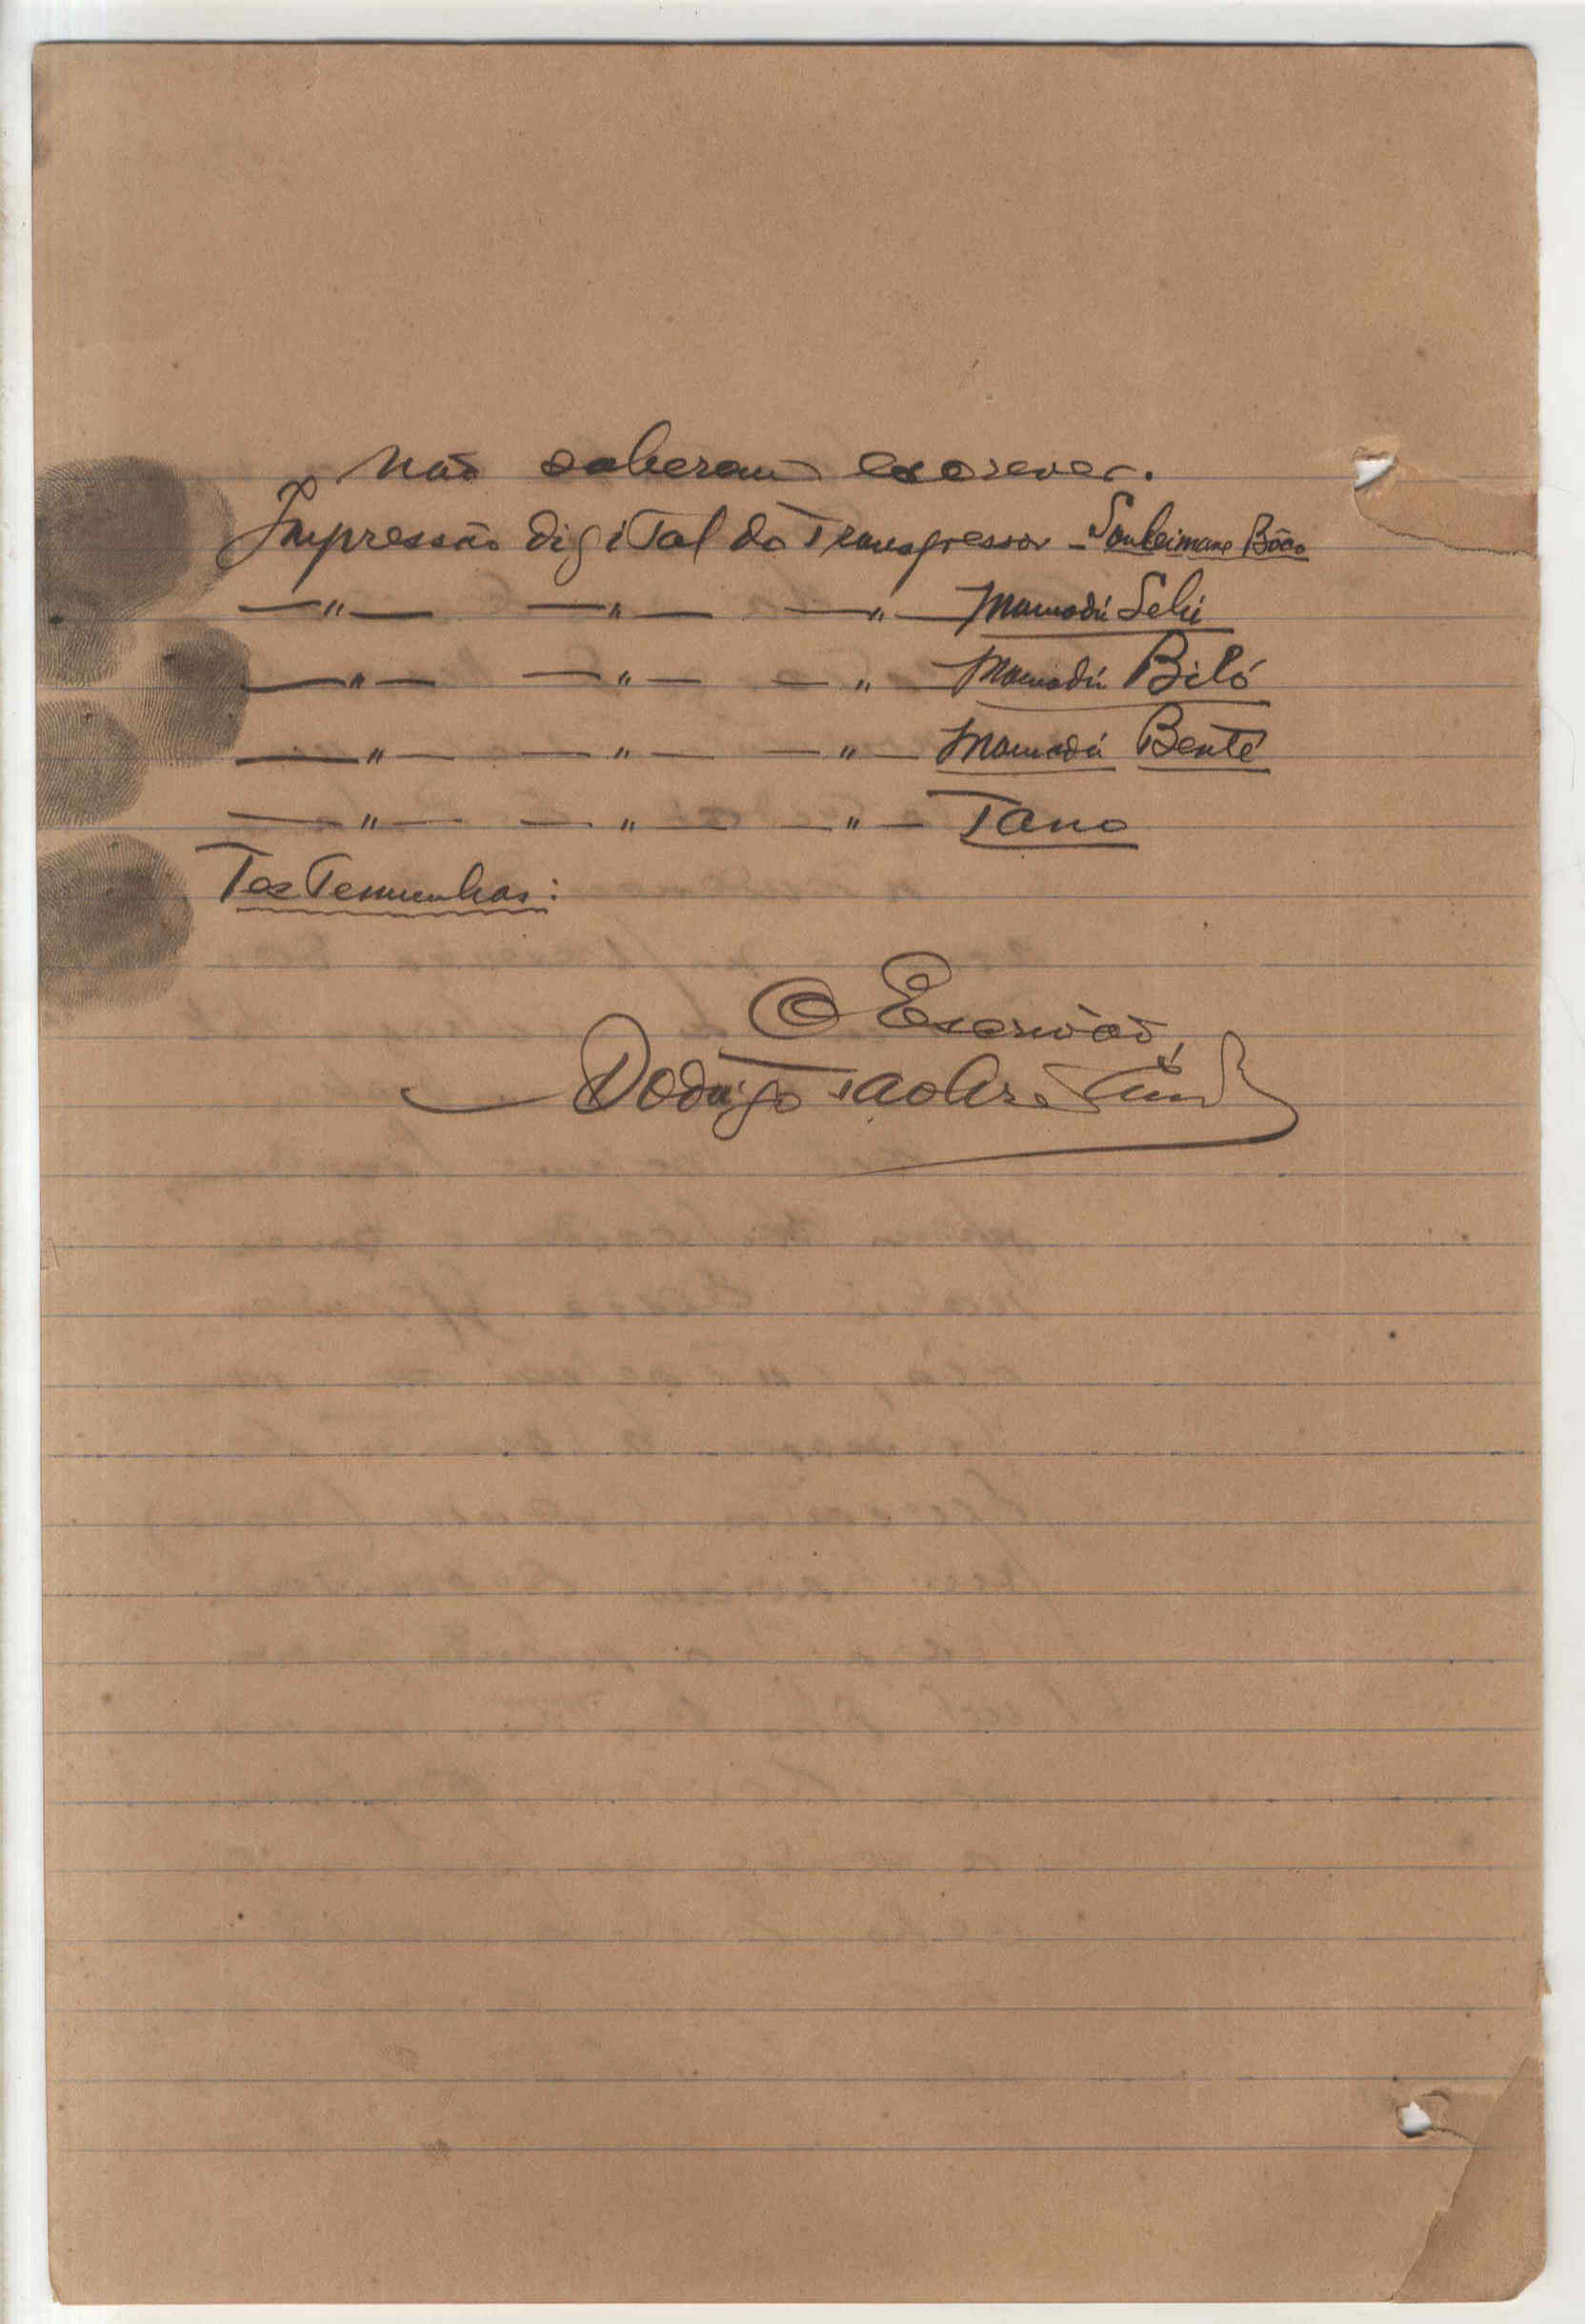 não saberem escrever.
Impressão digital do Transgressor - Souleimane Bóao
—"— —"— —"— Mamadú Selú
—"— —"— —"— Mamadú Biló
—"— —"— —"— Mamadú Benté
—"— —"— —"— Tano
Testemunhas:
O Escrivão,
Rodrigo